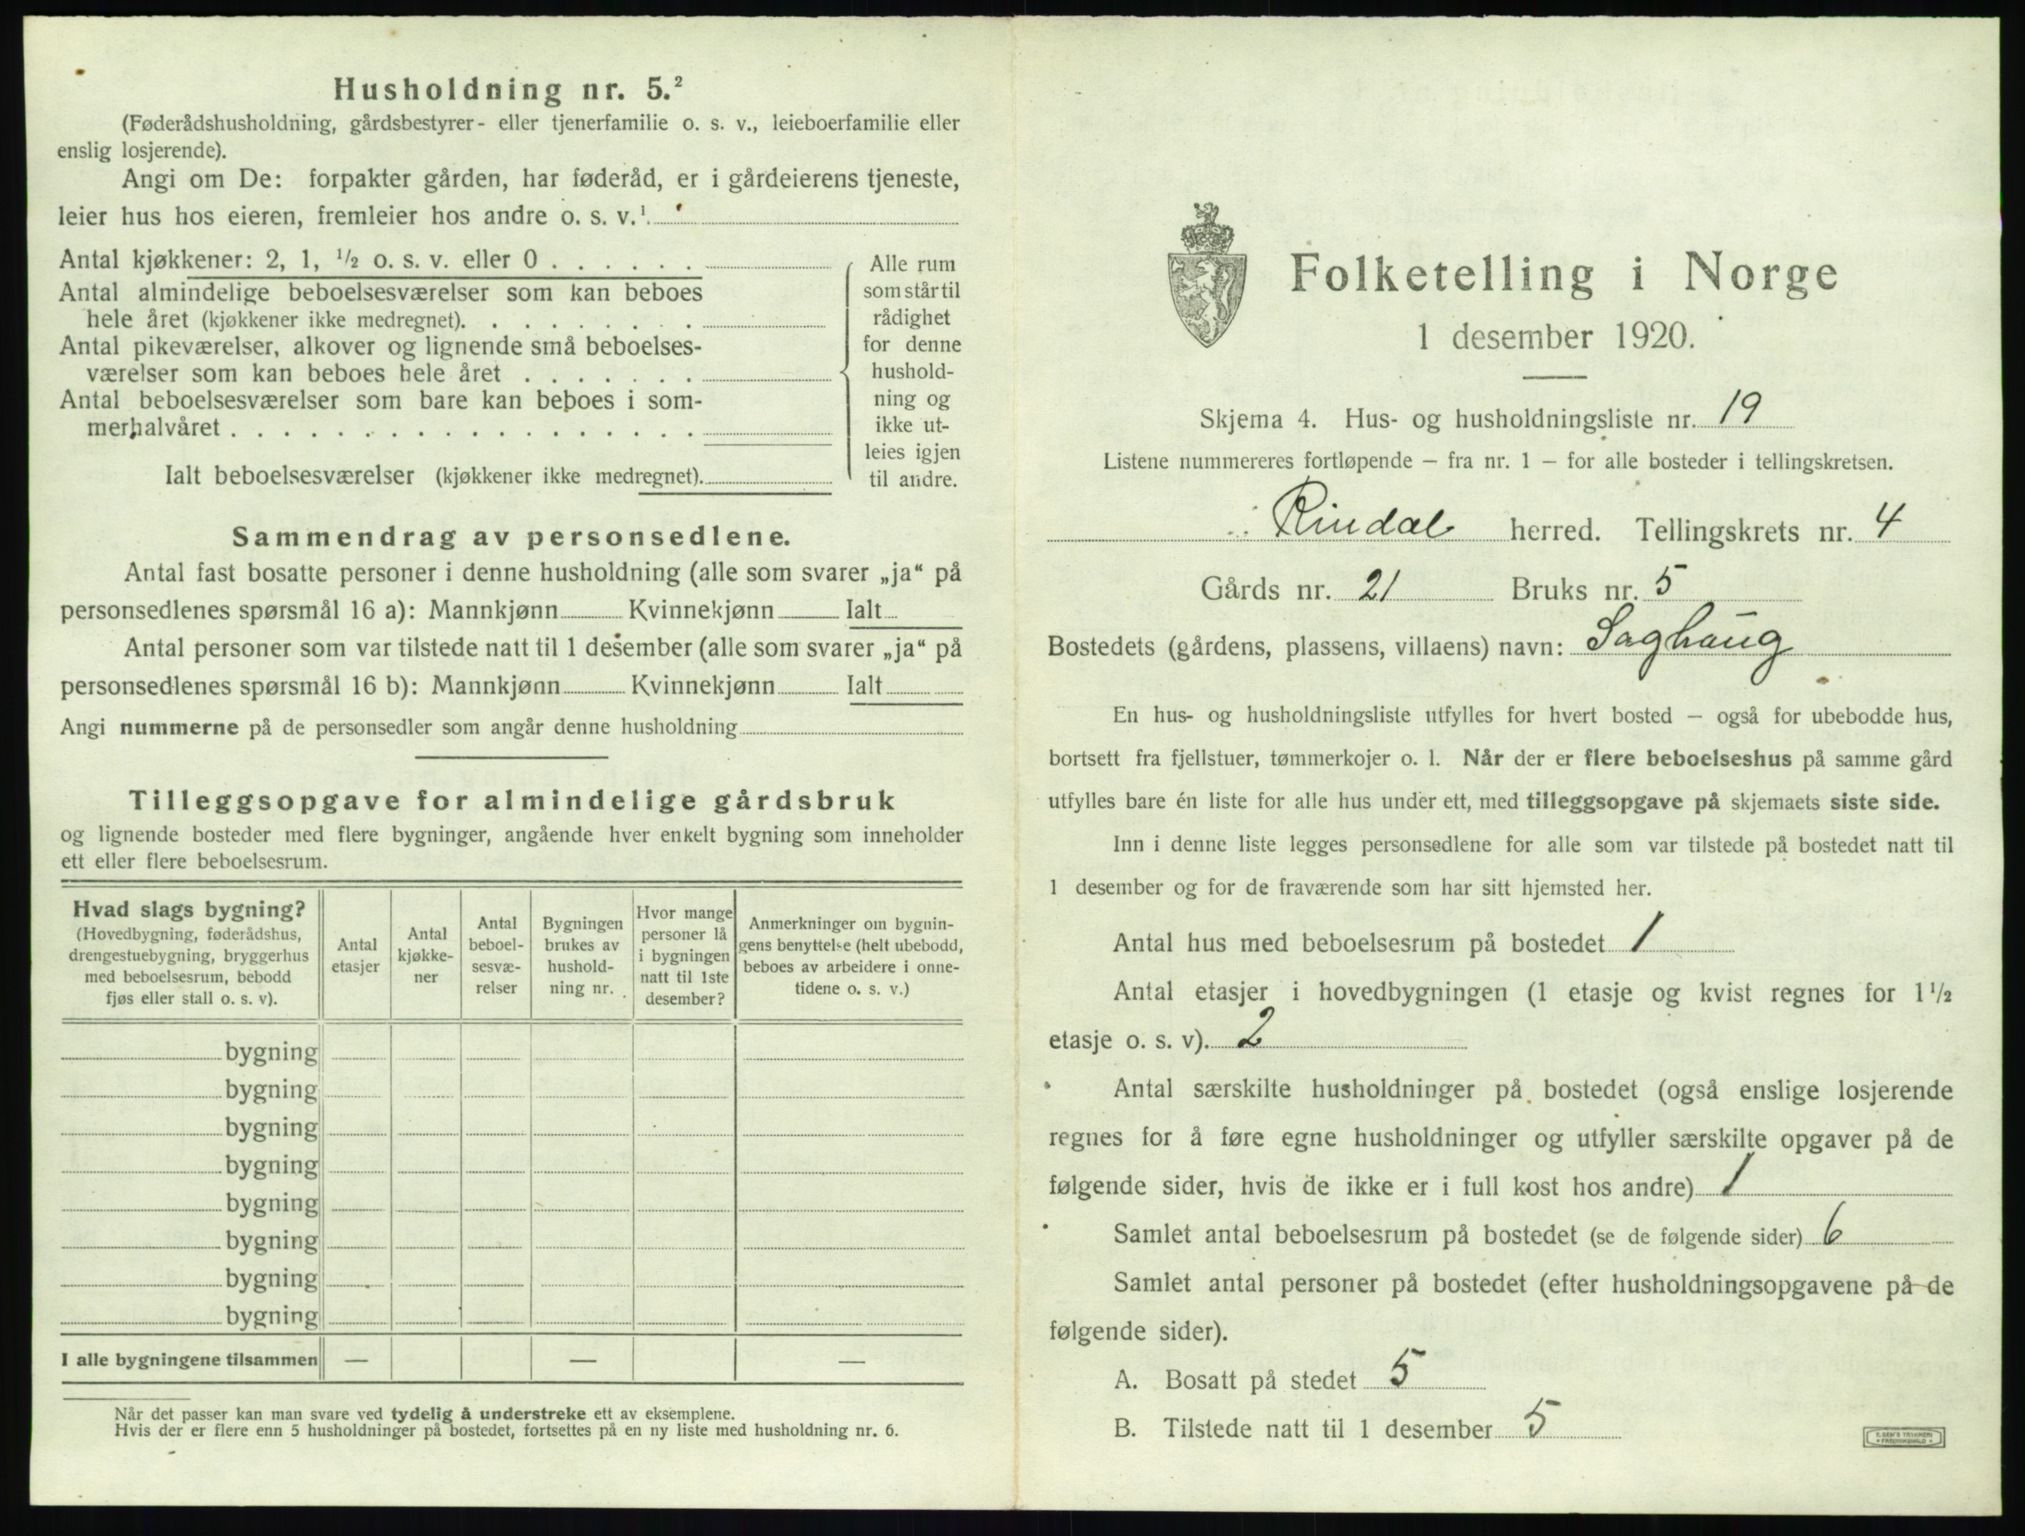 Husholdning nr. 5.²
(Føderådshusholdning, gårdsbestyrer- eller tjenerfamilie o. s. v., leieboerfamilie eller
enslig losjerende).
Angi om De: forpakter gården, har føderåd, er i gårdeierens tjeneste,
leier hus hos eieren, fremleier hos andre o. s. v.¹
Antal kjøkkener: 2, 1, ½ o. s. v. eller 0 . . . . . .
Antal almindelige beboelsesværelser som kan beboes
hele året (kjøkkener ikke medregnet). . . . . . . . .
Antal pikeværelser, alkover og lignende små beboelses-
værelser som kan beboes hele året . . . . . . .
Antal beboelsesværelser som bare kan beboes i som-
merhalvåret . . . . . . . . . . . . . . . . . .
Ialt beboelsesværelser (kjøkkener ikke medregnet).
Alle rum
som står til
rådighet
for denne
hushold-
ning og
ikke ut-
leies igjen
til andre.
Sammendrag av personsedlene.
Antal fast bosatte personer i denne husholdning (alle som svarer „ja“ på
personsedlenes spørsmål 16 a): Mannkjønn Kvinnekjønn Ialt
Antal personer som var tilstede natt til 1 desember (alle som svarer „ja“ på
personsedlenes spørsmål 16 b): Mannkjønn Kvinnekjønn Ialt
Angi nummerne på de personsedler som angår denne husholdning
Tilleggsopgave for almindelige gårdsbruk
og lignende bosteder med flere bygninger, angående hver enkelt bygning som inneholder
ett eller flere beboelsesrum.
Hvad slags bygning?
(Hovedbygning, føderådshus,
drengestuebygning, bryggerhus
med beboelsesrum, bebodd
fjøs eller stall o. s. v).
Antal
etasjer
Antal
kjøkke-
ner
Antal
beboel-
sesvæ-
relser
Bygningen
brukes av
hushold-
ning nr.
Hvor mange
personer lå
i bygningen
natt til 1ste
desember?
Anmerkninger om bygnin-
gens benyttelse (helt ubebodd,
beboes av arbeidere i onne-
tidene o. s. v.)
bygning
bygning
bygning
bygning
bygning
bygning
bygning
bygning
I alle bygningene tilsammen — — —
Når det passer kan man svare ved tydelig å understreke ett av eksemplene.
Hvis der er flere enn 5 husholdninger på bostedet, fortsettes på en ny liste med husholdning nr. 6.
Folketelling i Norge
1 desember 1920.
Skjema 4. Hus- og husholdningsliste nr. 19
Listene nummereres fortløpende – fra nr. 1 – for alle bosteder i tellingskretsen.
Rindal herred. Tellingskrets nr. 4
Gårds nr. 21 Bruks nr. 5
Bostedets (gårdens, plassens, villaens) navn: Saghaug
En hus- og husholdningsliste utfylles for hvert bosted – også for ubebodde hus,
bortsett fra fjellstuer, tømmerkojer o. l. Når der er flere beboelseshus på samme gård
utfylles bare én liste for alle hus under ett, med tilleggsopgave på skjemaets siste side.
Inn i denne liste legges personsedlene for alle som var tilstede på bostedet natt til
1 desember og for de fraværende som har sitt hjemsted her.
Antal hus med beboelsesrum på bostedet 1
Antal etasjer i hovedbygningen (1 etasje og kvist regnes for 1½
etasje o. s. v). 2
Antal særskilte husholdninger på bostedet (også enslige losjerende
regnes for å føre egne husholdninger og utfyller særskilte opgaver på de
følgende sider, hvis de ikke er i full kost hos andre) 1
Samlet antal beboelsesrum på bostedet (se de følgende sider) 6
Samlet antal personer på bostedet (efter husholdningsopgavene på de
følgende sider).
A. Bosatt på stedet 5
B. Tilstede natt til 1 desember 5